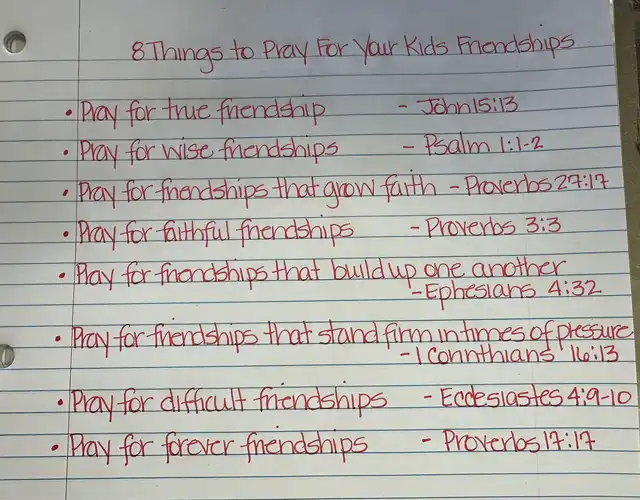 8 Things to Pray For Your Kids Friendships
• Pray for true friendship - John 15:13
• Pray for wise friendships - Psalm 1:1-2
• Pray for friendships that grow faith - Proverbs 27:17
• Pray for faithful friendships - Proverbs 3:3
• Pray for friendships that build up one another
- Ephesians 4:32
• Pray for friendships that stand firm in times of pressure
- 1 Corinthians 16:13
• Pray for difficult friendships - Ecclesiastes 4:9-10
• Pray for forever friendships - Proverbs 17:17